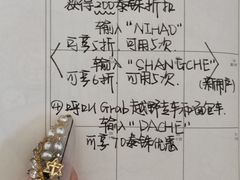 获得200泰铢折扣
输入“NIHAO”
可享5折,可用5次.
输入“SHANGCHE”
可享6折,可用5次. (新用户)
④呼叫Grab越野垫车和面包车.
输入“DACHE”
可享70泰铢优惠